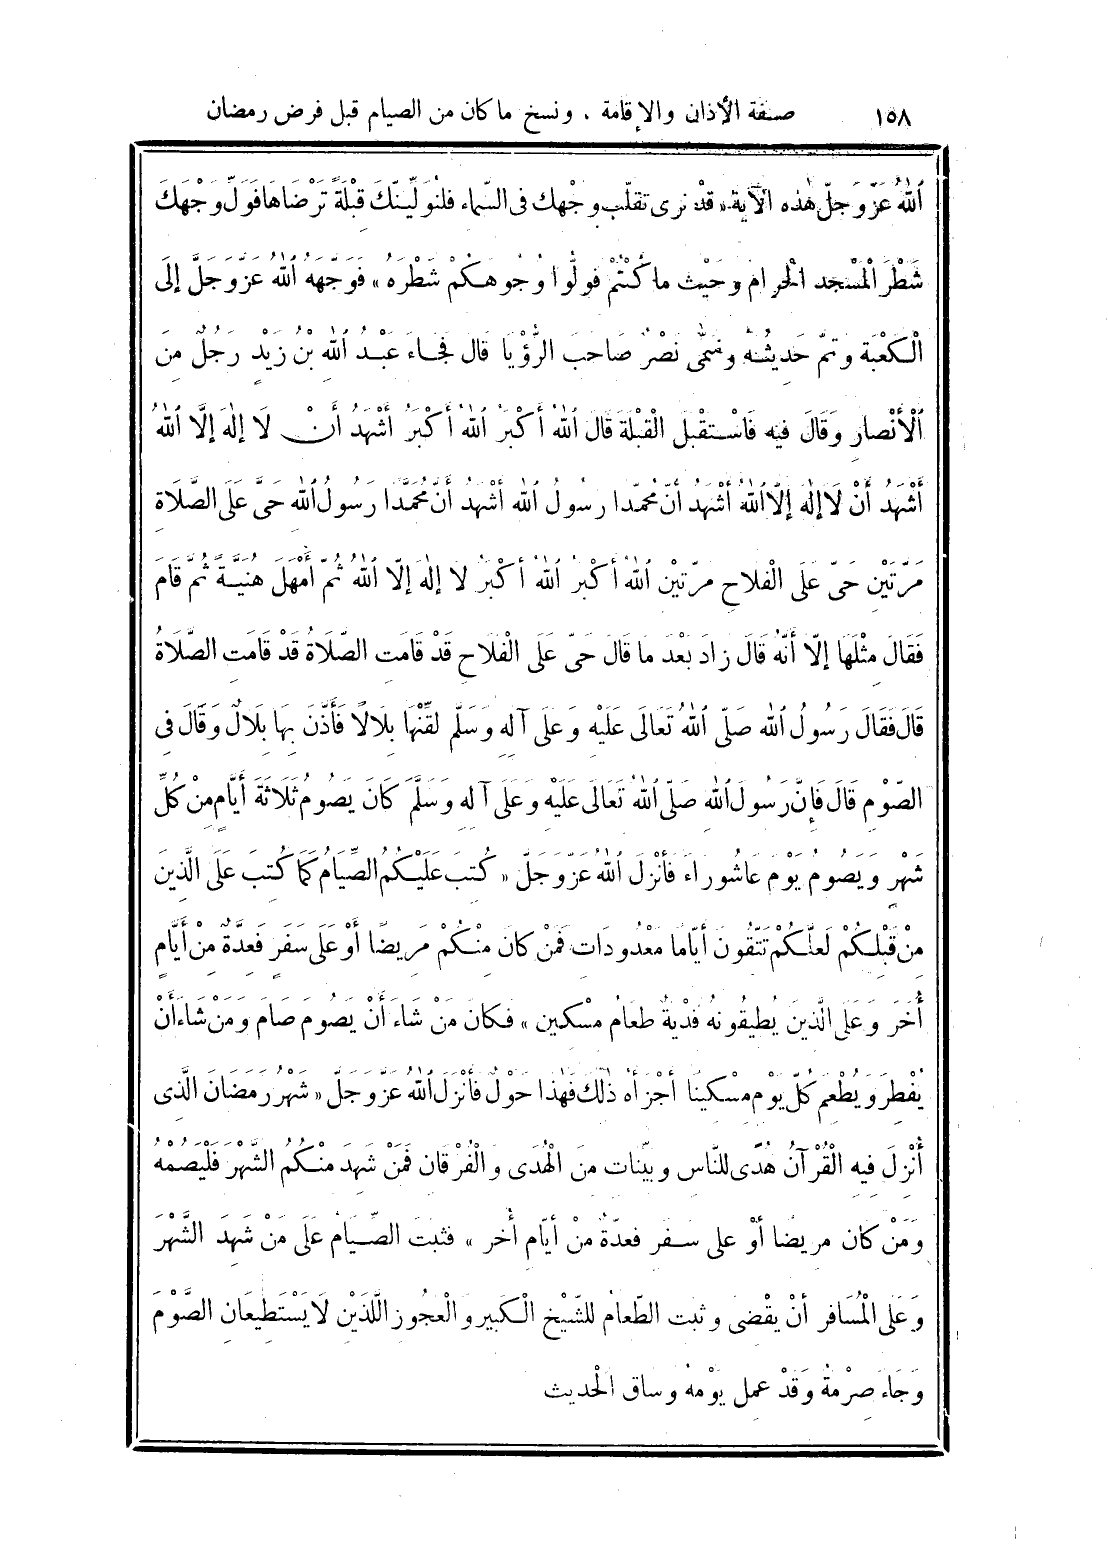 ١٥٨ صفة الأذان والإقامة . ونسخ ما كان من الصيام قبل فرض رمضان
ٱللهُ عَزَّ وَجَلَّ هٰذه الْآيَةَ « قَدْ نرى تقلّب وجْهك فى السَّماء فلنُوَلِّينّكَ قبْلَةً تَرْضَاهَا فَوَلِّ وَجْهَكَ
شَطْرَ الْمَسْجد الْحرامِ وحَيْثُ ما كُنْتُمْ فولُّوا وُجُوهكُمْ شَطْرَهُ » فَوَجَّهَهُ ٱللهُ عَزَّ وَجَلَّ إلَى
الْكَعْبَة وتمَّ حَديثُهُ وسَمَّى نَصْرٌ صَاحبَ الرُّؤْيَا قَالَ فَجَاءَ عَبْدُ ٱللهِ بْنُ زَيْدٍ رَجُلٌ منَ
ٱلْأَنْصارِ وَقَالَ فيه فَاسْتَقْبَلَ الْقبْلَةَ قَالَ ٱللهُ أَكْبَرُ ٱللهُ أَكْبَرُ أَشْهَدُ أَنْ لَا إلَهَ إلَّا ٱللهُ
أَشْهَدُ أَنْ لَا إلَهَ إلَّا ٱللهُ أَشْهَدُ أَنَّ مُحَمَّدا رسُولُ ٱلله أَشْهَدُ أَنَّ مُحَمَّدًا رَسُولُ ٱللهِ حَىَّ عَلَى الصَّلَاةِ
مَرَّتَيْنِ حَىَّ عَلَى الْفَلَاحِ مرّتَيْنِ ٱللهُ أَكْبَرُ ٱللهُ أَكْبَرُ لا إلَهَ إلَّا ٱللهُ ثُمَّ أَمْهَلَ هُنَيَّةً ثُمَّ قَامَ
فَقَالَ مثْلَهَا إلَّا أَنَّهُ قَالَ زادَ بَعْدَ ما قَالَ حَىَّ عَلَى الْفَلَاحِ قَدْ قَامَتِ الصَّلَاةُ قَدْ قَامَتِ الصَّلَاةُ
قَالَ فَقَالَ رَسُولُ ٱللهِ صَلَّى ٱللهُ تَعَالَى عَلَيْهِ وَعَلَى آلهِ وَسَلَّمَ لَقِّنْهَا بلَالًا فَأَذَّنَ بهَا بلَالٌ وَقَالَ فى
الصَّوْمِ قَالَ فَإنَّ رَسُولَ ٱللهِ صَلَّى ٱللهُ تَعَالَى عَلَيْهِ وَعَلَى آلهِ وسَلَّمَ كَانَ يَصُومُ ثَلَاثَةَ أَيَّامٍ مِنْ كُلِّ
شَهْرٍ وَيَصُومُ يَوْمَ عَاشُورَاءَ فَأَنْزَلَ ٱللهُ عَزَّ وَجَلَّ « كُتبَ عَلَيْكُمُ الصِّيَامُ كَمَا كُتبَ عَلَى الَّذينَ
منْ قَبْلكُمْ لَعَلَّكُمْ تَتَّقُونَ أَيَّاما مَعْدُودَات فَمَنْ كَانَ منْكُمْ مَريضًا أَوْ عَلَى سَفَرٍ فَعدَّةٌ منْ أَيَّامٍ
أُخَرَ وَعَلَى الَّذينَ يُطيقُونَهُ فدْيَةٌ طَعَامُ مسْكين » فَكَانَ مَنْ شَاءَ أَنْ يَصُومَ صَامَ وَمَنْ شَاءَ أَنْ
يُفْطرَ وَيُطْعمَ كُلَّ يَوْمٍ مسْكينًا أَجْزَأَهُ ذٰلكَ فَهٰذا حَوْلٌ فَأَنْزَلَ ٱللهُ عَزَّ وَجَلَّ « شَهْرُ رَمَضَانَ الَّذى
أُنْزلَ فيه الْقُرْآنُ هُدًى للنَّاس وبَيِّنَات منَ الْهُدَى والْفُرْقَان فَمَنْ شَهدَ منْكُمُ الشَّهْرَ فَلْيَصُمْهُ
وَمَنْ كَانَ مريضًا أوْ على سفر فعدَّةٌ منْ أَيَّامٍ أُخَر » فَثَبتَ الصِّيَامُ عَلَى مَنْ شَهدَ الشَّهْرَ
وَعَلَى الْمُسَافر أنْ يقْضىَ وثبتَ الطَّعامُ للشَّيْخ الْكَبير والْعَجُوز اللَّذَيْنِ لَا يَسْتَطيعَان الصَّوْمَ
وَجَاءَ صرْمَةُ وَقَدْ عمل يوْمهُ وساق الْحديث